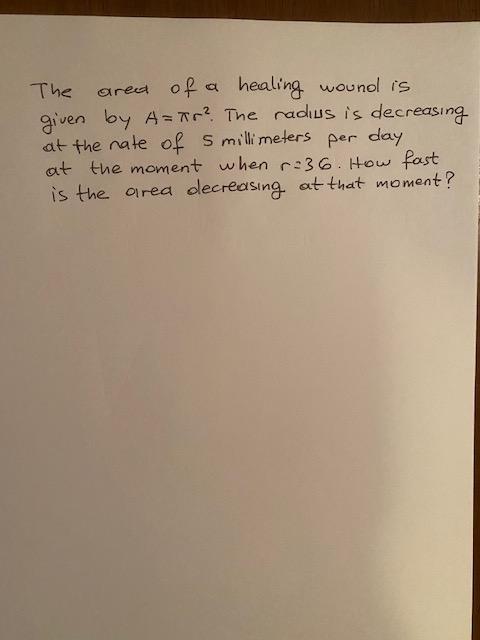 The area of a healing wound is
given by A = πr². The radius is decreasing
at the rate of 5 millimeters per day
at the moment when r=36. How fast
is the area decreasing at that moment?